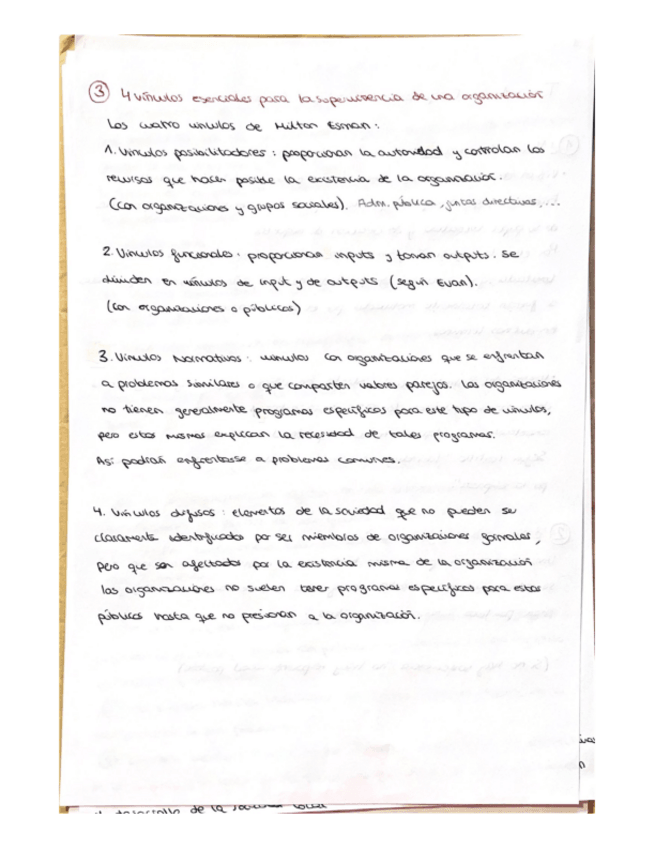 ③ 4 vínculos esenciales para la supervivencia de una organización
Los cuatro vínculos de Milton Esman:
1. Vínculos posibilitadores: proporcionan la autoridad y controlan los
recursos que hacen posible la existencia de la organización.
(con organizaciones y grupos sociales). Adm. pública, juntas directivas,...
2. Vínculos funcionales: proporcionan inputs y toman outputs. Se
dividen en vínculos de input y de outputs (según Evan).
(con organizaciones o públicos)
3. Vínculos Normativos: vínculos con organizaciones que se enfrentan
a problemas similares o que comparten valores parejos. Las organizaciones
no tienen generalmente programas específicos para este tipo de vínculos,
pero estos mismos explican la necesidad de tales programas.
Así podrán enfrentarse a problemas comunes.
4. Vínculos difusos: elementos de la sociedad que no pueden ser
claramente identificados por ser miembros de organizaciones formales,
pero que son afectados por la existencia misma de la organización
las organizaciones no suelen tener programas específicos para estos
públicos hasta que no presionan a la organización.
desarrollo de la